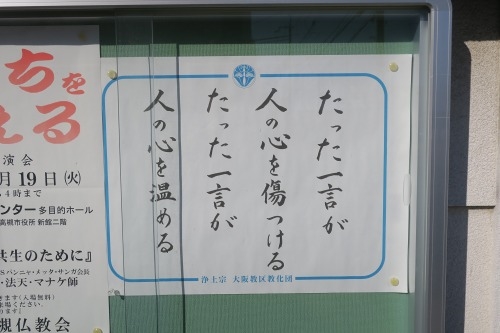 たった一言が
人の心を傷つける
たった一言が
人の心を温める
浄土宗 大阪教区教化団
ちを
える
演会
月19日㈫
4時まで
ンター 多目的ホール
高槻市役所 新館二階
共生のために』
Sパンニャ・メッタ・サンガ会長
・法天・マナケ師
きます(入場無料)
槻仏教会